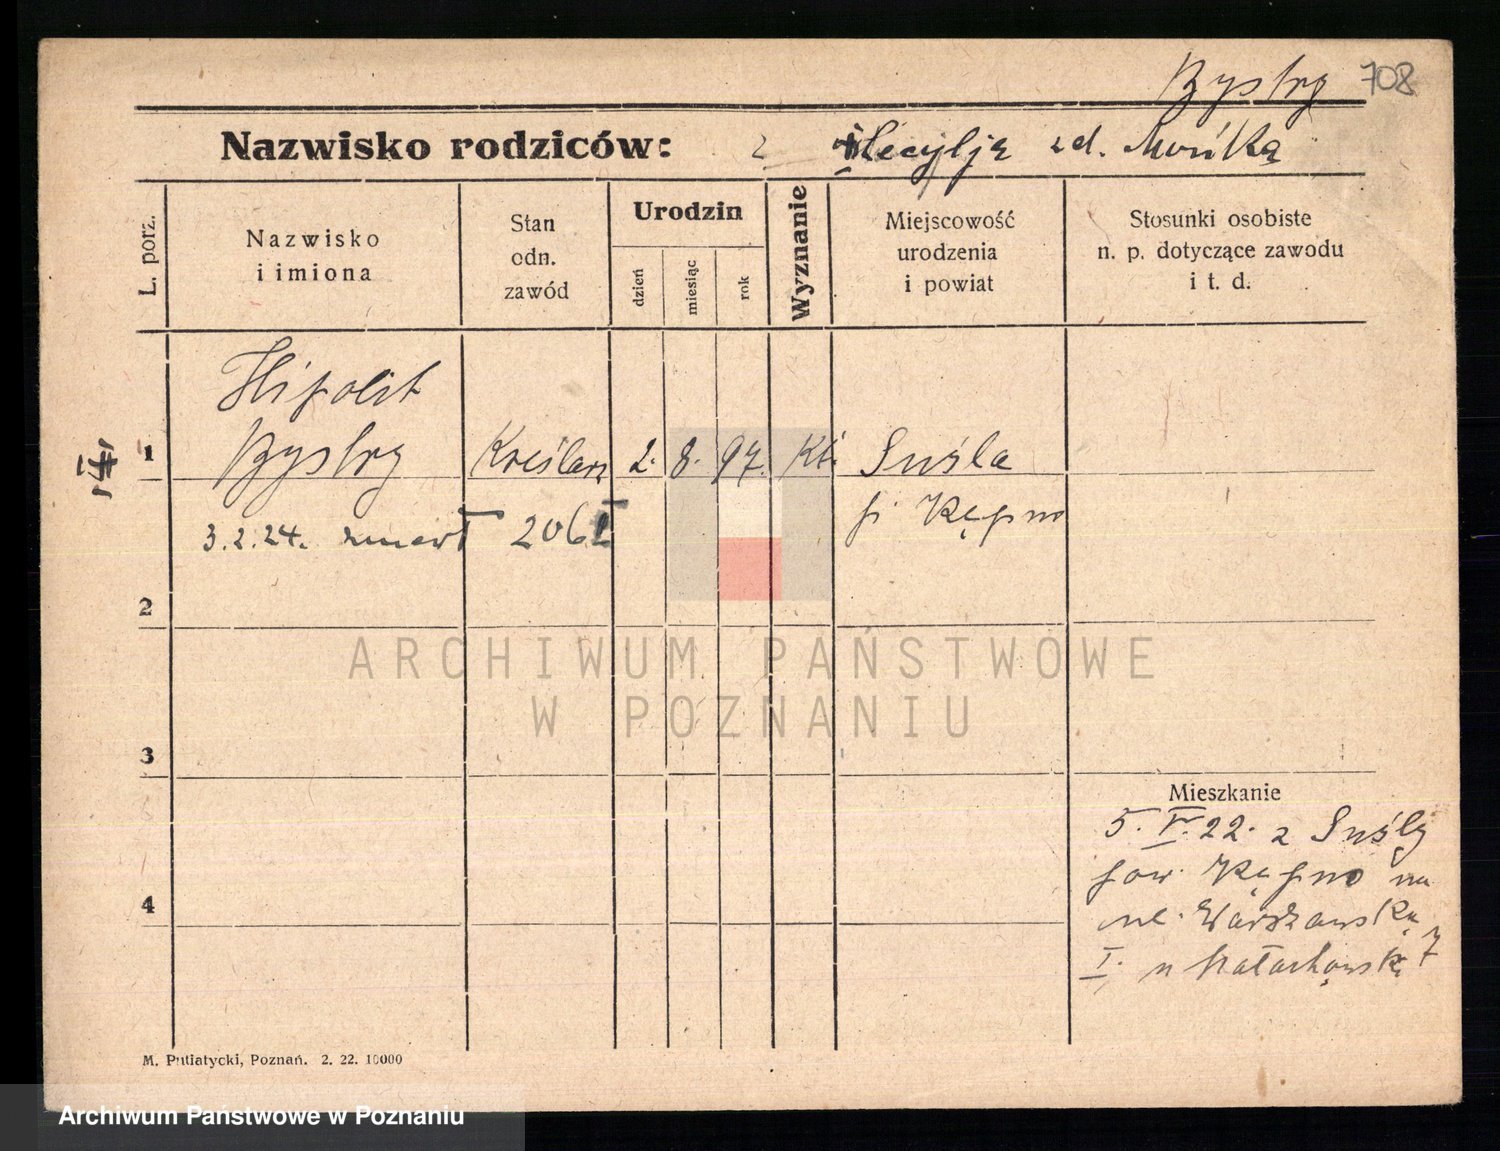 Bystry 708
Nazwisko rodziców: z Cecylją zd. Mońka
L. porz.
Nazwisko
i imiona
Stan
odn.
zawód
Urodzin
dzień
miesiąc
rok
Wyznanie
Miejscowość
urodzenia
i powiat
Stosunki osobiste
n. p. dotyczące zawodu
i t. d.
Hipolit
1 Bystry Kreślarz 2. 8. 97. Kt. Suśla
p. Kępno
3.2.24. zmarł 206
2
ARCHIWUM PAŃSTWOWE
W POZNANIU
3
Mieszkanie
5. V. 22. z Suśly
pow. Kępno na
ul. Warszawską 7
I. u
4
M. Putiatycki, Poznań. 2. 22. 10000
Archiwum Państwowe w Poznaniu